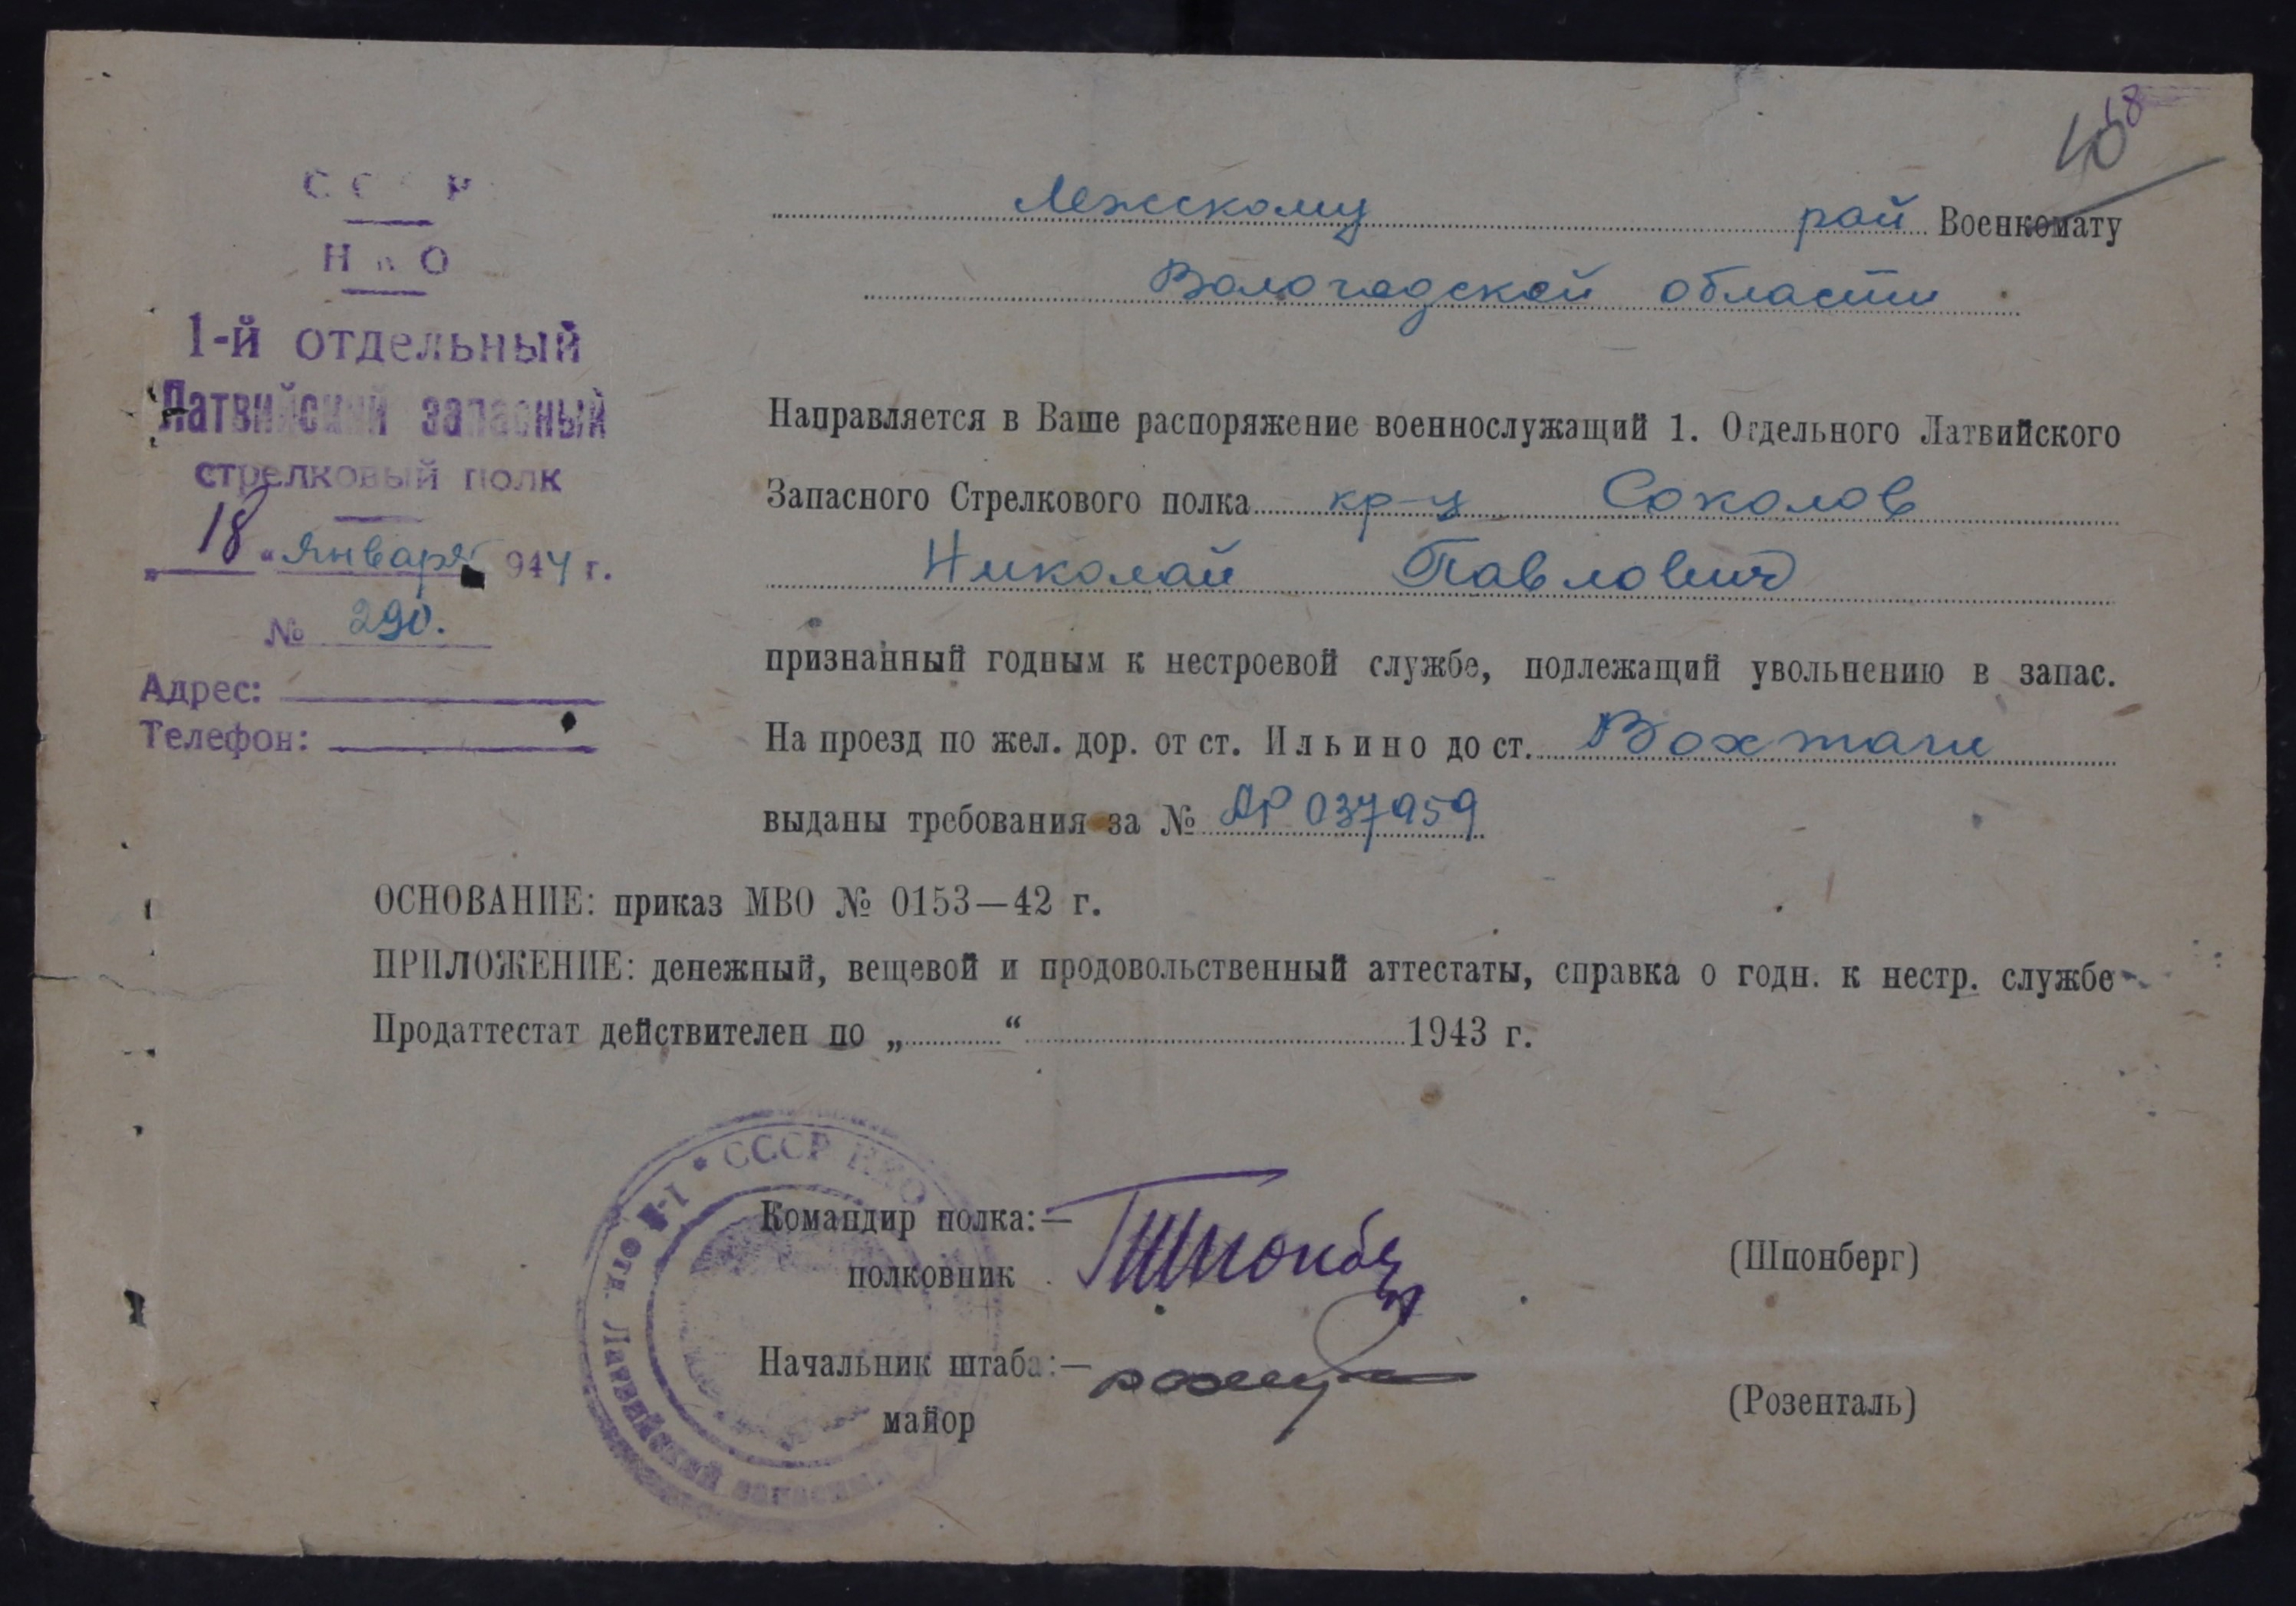 18
40
СССР
НКО
1-й отдельный
Латвийский запасный
стрелковый полк
„18“ Января 1944 г.
№ 290.
Адрес:
Телефон:
Лежскому рай Военкомату
Вологодской области
Направляется в Ваше распоряжение военнослужащий 1. Отдельного Латвийского
Запасного Стрелкового полка кр-ц Соколов
Николай Павлович
признанный годным к нестроевой службе, подлежащий увольнению в запас.
На проезд по жел. дор. от ст. Ильино до ст. Вохтоги
выданы требования за № АР 037959
ОСНОВАНИЕ: приказ МВО № 0153—42 г.
ПРИЛОЖЕНИЕ: денежный, вещевой и продовольственный аттестаты, справка о годн. к нестр. службе
Продаттестат действителен по „ “ 1943 г.
СССР НКО
1-й Отд. Латвийский запасный
Командир полка:—
полковник (Шпонберг)
Начальник штаба:—
майор (Розенталь)